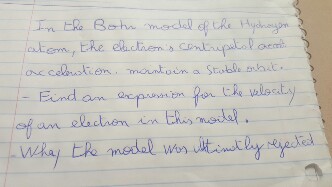 In the Bohr model of the Hydrogen
atom, the electron's centripetal
acceleration. maintain a stable orbit.
- Find an expression for the velocity
of an electron in this model.
- Whay the model was ultimotly rejected